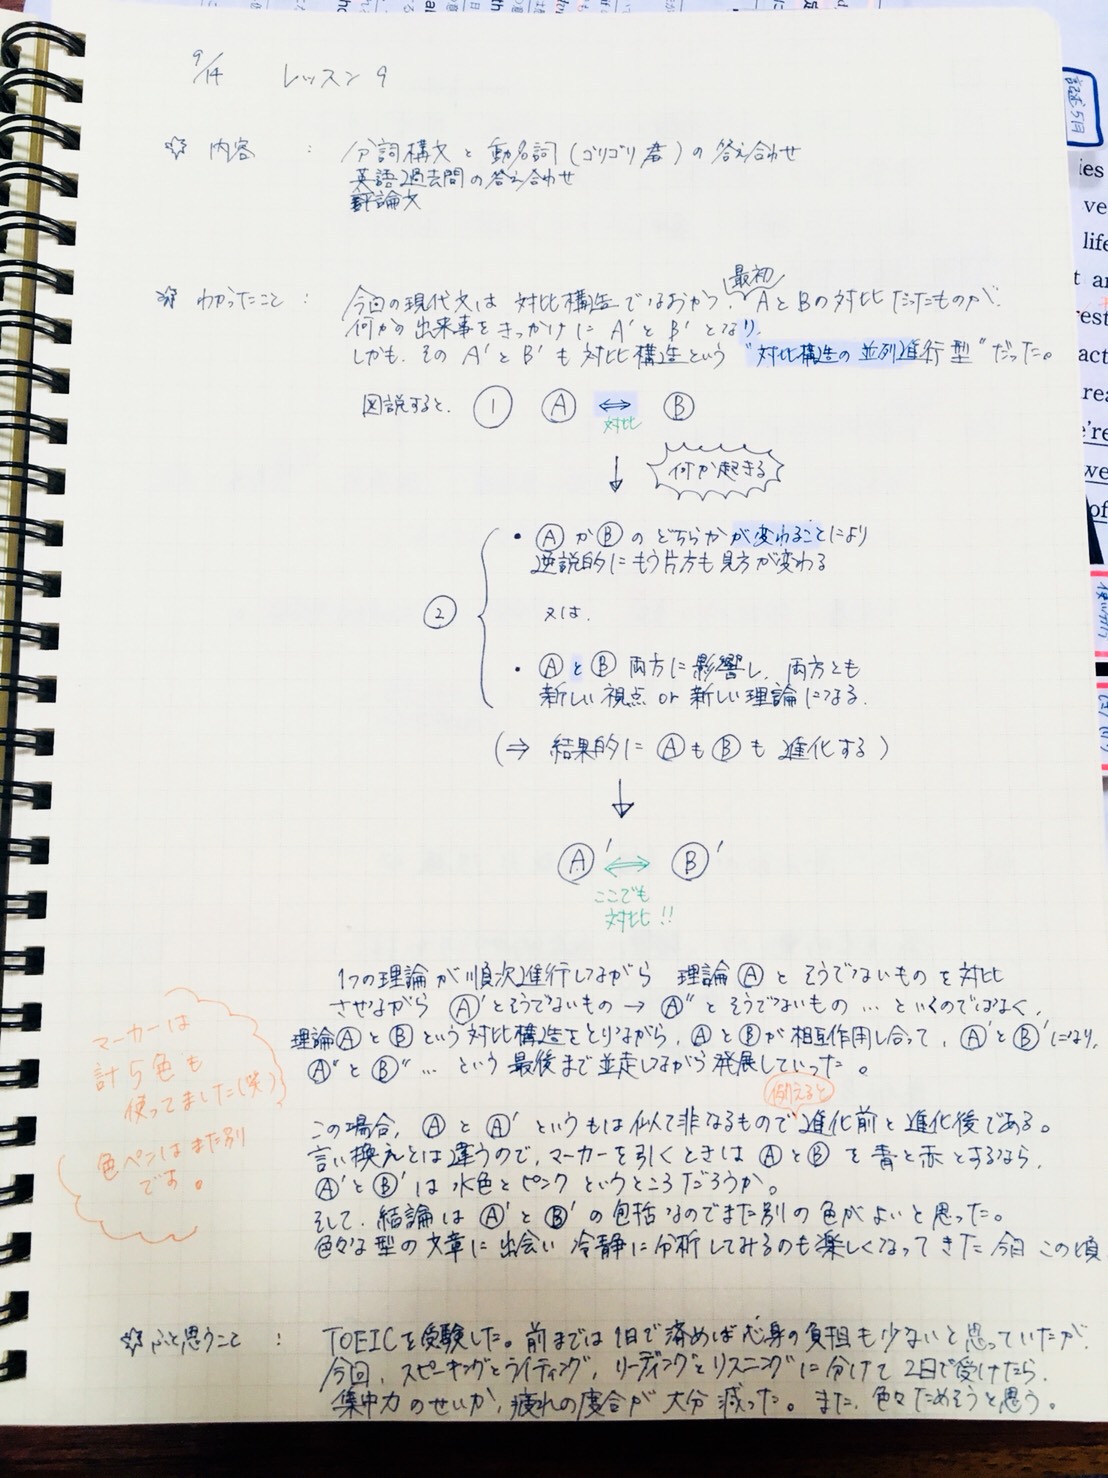 9/14 レッスン 9
☆ 内容 : 分詞構文と動名詞(ゴリゴリ君)の答え合わせ
英語過去問の答え合わせ
評論文
☆ わかったこと : 今回の現代文は 対比構造ではあるおかつ、最初 AとBの対比だったものが、
何かの出来事をきっかけに A'と B'となり、
しかも、その A'と B'も対比構造という "対比構造の並列進行型" だった。
図説すると、 ① Ⓐ ⇔ Ⓑ
対比
↓ 何か起きる
② ・Ⓐ か Ⓑ の どちらかが変わることにより
逆説的にもう片方も見方が変わる
又は、
・Ⓐ と Ⓑ 両方に影響し、両方とも
新しい視点 or 新しい理論になる。
(⇒ 結果的に Ⓐ も Ⓑ も 進化する)
↓
Ⓐ' ⇔ Ⓑ'
ここでも
対比!!
1つの理論が順次進行しながら 理論Ⓐと そうでないものを対比
させながら Ⓐ'とそうでないもの → Ⓐ"と そうでないもの … といくのではなく、
理論ⒶとⒷという対比構造をとりながら、ⒶとⒷが相互作用し合って、Ⓐ'とⒷ'になり、
Ⓐ"とⒷ" … という 最後まで並走しながら発展していった。
マーカーは
計5色も
使ってました(笑)
色ペンはまた別
です。
例えると
この場合、Ⓐ と Ⓐ' というもは似て非なるもので進化前と進化後である。
言い換えとは違うので、マーカーを引くときは ⒶとⒷ を 青と赤とするなら、
Ⓐ'とⒷ'は 水色とピンクというところだろうか。
そして、結論は Ⓐ'とⒷ'の包括なのでまた別の色がよいと思った。
色々な型の文章に出会い 冷静に分析してみるのも楽しくなってきた今日この頃
☆ ふと思うこと : TOEICを受験した。前までは1日で済めば心身の負担も少ないと思っていたが、
今回、スピーキングとライティング、リーディングとリスニングに分けて2日で受けたら、
集中力のせいか、疲れの度合が大分減った。また、色々ためそうと思う。